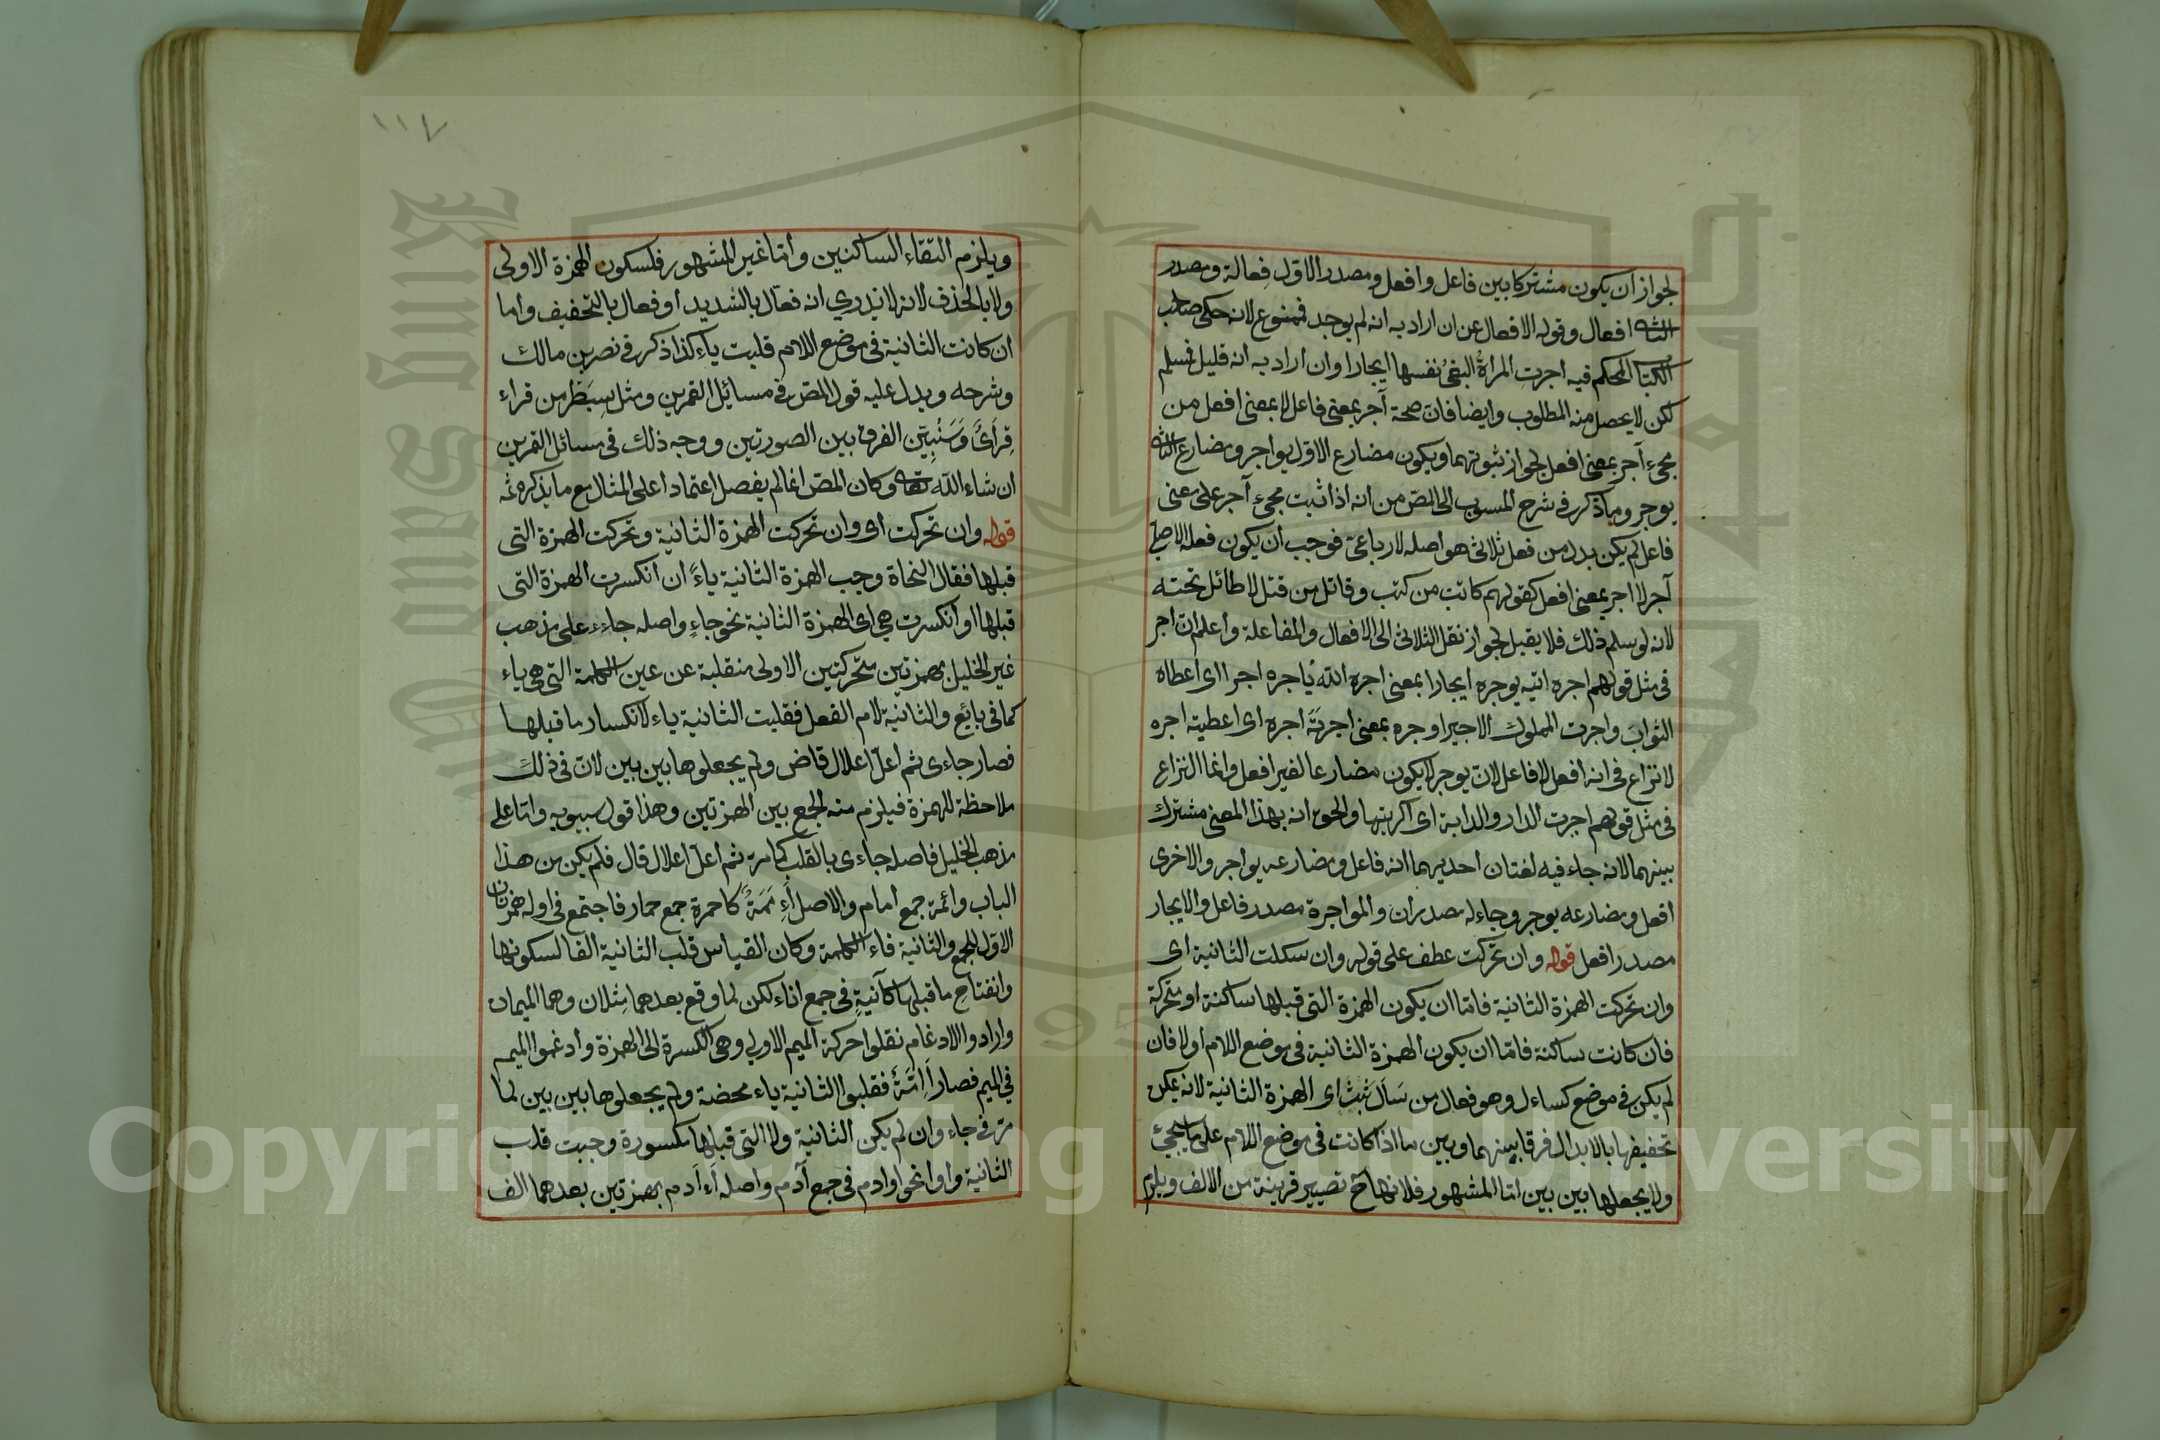 لجواز ان يكون مشتركا بين فاعل وافعل ومصدر الاول فعالة ومصدر
الثانى افعال وقوله الافعال عن ان اراد به انه لم يوجد فممنوع لانه حكى صاحب
الكتاب المحكم فيه اجرت المراة البغى نفسها ايجارا وان اراد به انه قليل فسلم
لكن لا يحصل منه المطلوب وايضا فان صحة آجر بمعنى فاعل لا بمعنى افعل من
مجىء آجر بمعنى افعل لجواز ثبوتهما ويكون مضارع الاول يواجر ومضارع الثانى
يوجر وما ذكر فى شرح المنسوب الى المص من انه اذا ثبت مجىء آجر على معنى
فاعل لم يكن بد من فعل ثلاثى هو اصله لا رباعى فوجب أن يكون فعله الاصلى
آجر لا اجر بمعنى افعل كقولهم كاتب من كتب وقاتل من قتل لا طائل تحته
لانه لو سلم ذلك فلا يقبل لجواز نقل الثلاثى الى الافعال والمفاعلة واعلم ان اجر
فى مثل قولهم اجره اتيه يوجره ايجارا بمعنى اجره الله ياجره اجرا اى اعطاه
الثواب واجرت المملوك الاجير اوجره بمعنى اجرته اجره اى اعطيته اجره
لا نزاع فى انه افعل لا فاعل لان يوجر لا يكون مضارعا لغير افعل وانما النزاع
فى مثل قولهم اجرت الدار والدابة اى اكريتها والحق انه بهذا المعنى مشترك
بينهما لانه جاء فيه لغتان احديهما انه فاعل ومضارعه يواجر والاخرى
افعل ومضارعه يوجر وجاء له مصدران والمواجرة مصدر فاعل والايجار
مصدر افعل قوله وان تحركت عطف على قوله وان سكنت الثانية اى
وان تحركت الهمزة الثانية فاما ان يكون الهمزة التى قبلها ساكنة او متحركة
فان كانت ساكنة فاما ان يكون الهمزة الثانية فى موضع اللام اولا فان
لم يكن فى موضع كساءل وهو فعال من سأل ثبت اى الهمزة الثانية لانه يمكن
تخفيفها بالابدال فرقا بينهما وبين ما اذا كانت فى موضع اللام على ما سيجئ
ولا يجعلها بين بين اما المشهور فلانها ح تصيير قريبة من الالف ويلزم
١١٧
ويلزم التقاء الساكنين واما غير المشهور فلسكون الهمزة الاولى
ولا بالحذف لانه لا يدرى انه فعال بالتشديد او فعال بالتخفيف واما
ان كانت الثانية فى موضع اللام قلبت ياء كذا ذكر فى نصر بن مالك
وشرحه ويدل عليه قول المص فى مسائل التمرين ومثل سبطر من قراء
قرأى وسنبين الفرق بين الصورتين ووجه ذلك فى مسائل التمرين
ان شاء الله تعالى وكان المص انما لم يفصل اعتمادا على المثال مع ما يذكره ثمه
قوله وان تحركت اى وان تحركت الهمزة الثانية وتحركت الهمزة التى
قبلها فقال النحاة وجب الهمزة الثانية ياءً ان انكسرت الهمزة التى
قبلها او انكسرت هى اى الهمزة الثانية نحو جاءٍ واصله جاءء على مذهب
غير الخليل بهمزتين متحركتين الاولى منقلبة عن عين الكلمة التى هى ياء
كما فى بائع والثانية لام الفعل فقلبت الثانية ياء لانكسار ما قبلها
فصار جاءى ثم اعل اعلال قاض ولم يجعلوها بين بين لان فى ذلك
ملاحظة للهمزة فيلزم منه الجمع بين الهمزتين وهذا قول سيبويه واما على
مذهب الخليل فاصله جاءى بالقلب كما مر ثم اعل اعلال قال فلم يكن من هذا
الباب وائمة جمع امام والاصل أءممة كاحمرة جمع حمار فاجتمع فى اوله همزتان
الاول للجمع والثانية فاء الكلمة وكان القياس قلب الثانية الفا لسكونها
وانفتاح ما قبلها كآنية فى جمع اناء لكن لما وقع بعدهما مثلان وهما الميمان
وارادوا الادغام نقلوا حركة الميم الاولى وهى الكسرة الى الهمزة وادغموا الميم
فى الميم فصار أَاِمّة فقلبوا الثانية ياء محضة ولم يجعلوها بين بين لما
مر فى جاء وان لم يكن الثانية ولا التى قبلها مكسورة وجبت قلب
الثانية واوا نحو اوادم فى جمع آدم واصله أءادم بهمزتين بعدهما الف